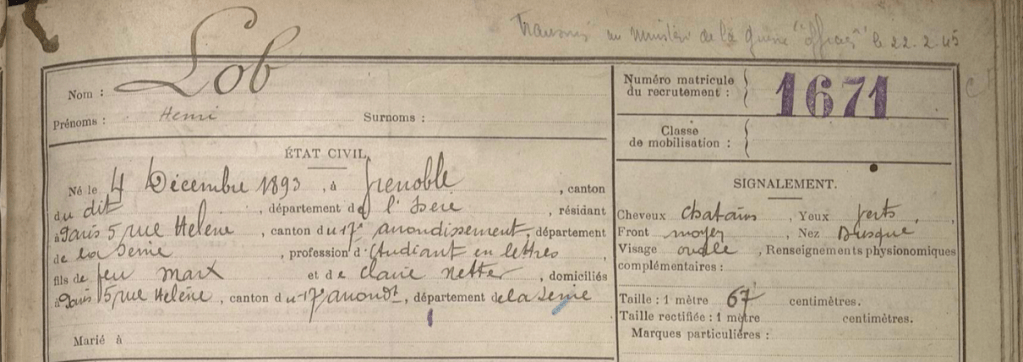 transmis au ministère de la guerre "officiers" le 22.2.45
Nom : Lob
Prénoms : Henri Surnoms :
ÉTAT CIVIL.
Né le 4 Décembre 1893, à Grenoble, canton
du dit, département de l'Isère, résidant
à Paris 5 rue Hélène, canton du 17e arrondissement, département
de la Seine, profession d'étudiant en lettres
fils de feu Marx et de Claire Netter, domiciliés
à Paris 5 rue Hélène, canton du 17e arrondt, département de la Seine
Marié à
Numéro matricule
du recrutement : 1671
Classe
de mobilisation :
SIGNALEMENT.
Cheveux chatains, Yeux verts,
Front moyen, Nez Busqué
Visage ovale, Renseignements physionomiques
complémentaires :
Taille : 1 mètre 67 centimètres.
Taille rectifiée : 1 mètre centimètres.
Marques particulières :